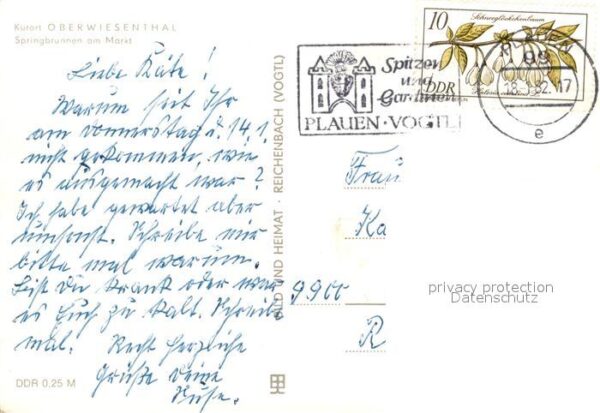 Kurort OBERWIESENTHAL
Springbrunnen am Markt
Liebe Käte!
Warum seit Ihr
am Donnerstag d. 14.1.
nicht gekommen, wie
es ausgemacht war?
Ich habe gewartet aber
umsonst. Schreibe mir
bitte mal warum.
Bist Du krank oder war
es Euch zu kalt. Schreibe
mal. Recht herzliche
Grüße Deine
DDR 0,25 M
BILD UND HEIMAT · REICHENBACH (VOGTL)
Spitzen
und
Gardinen
PLAUEN · VOGTL
10
Schneeglöckchenbaum
DDR
PLAUEN
18.1.82.17
e
Frau
Ka
9900
R
privacy protection
Datenschutz